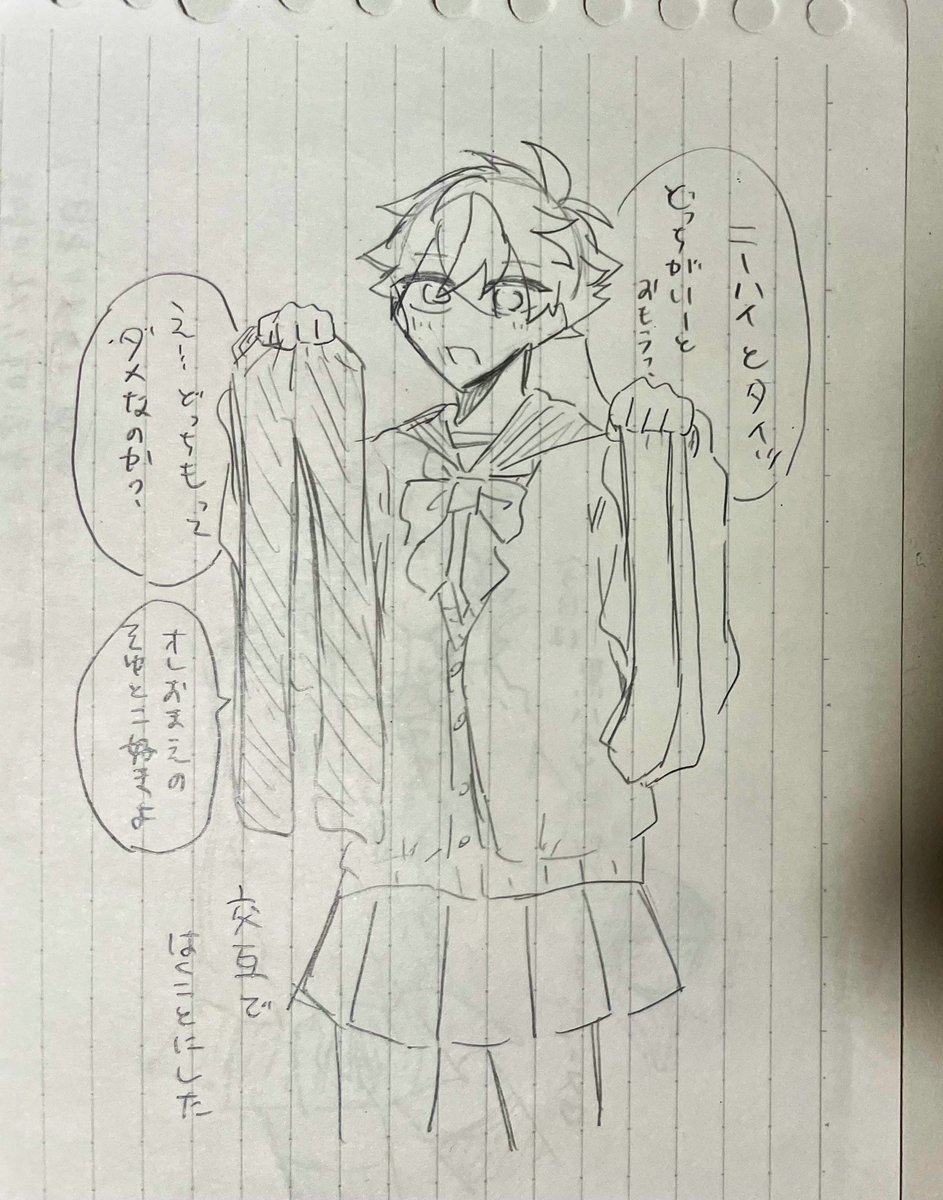 ニーハイとタイツ
どっちがいーと
おもう?
え!! どっちもって
ダメなのか?
オレおまえの
そゆとこ好きよ
交互で
はくことにした